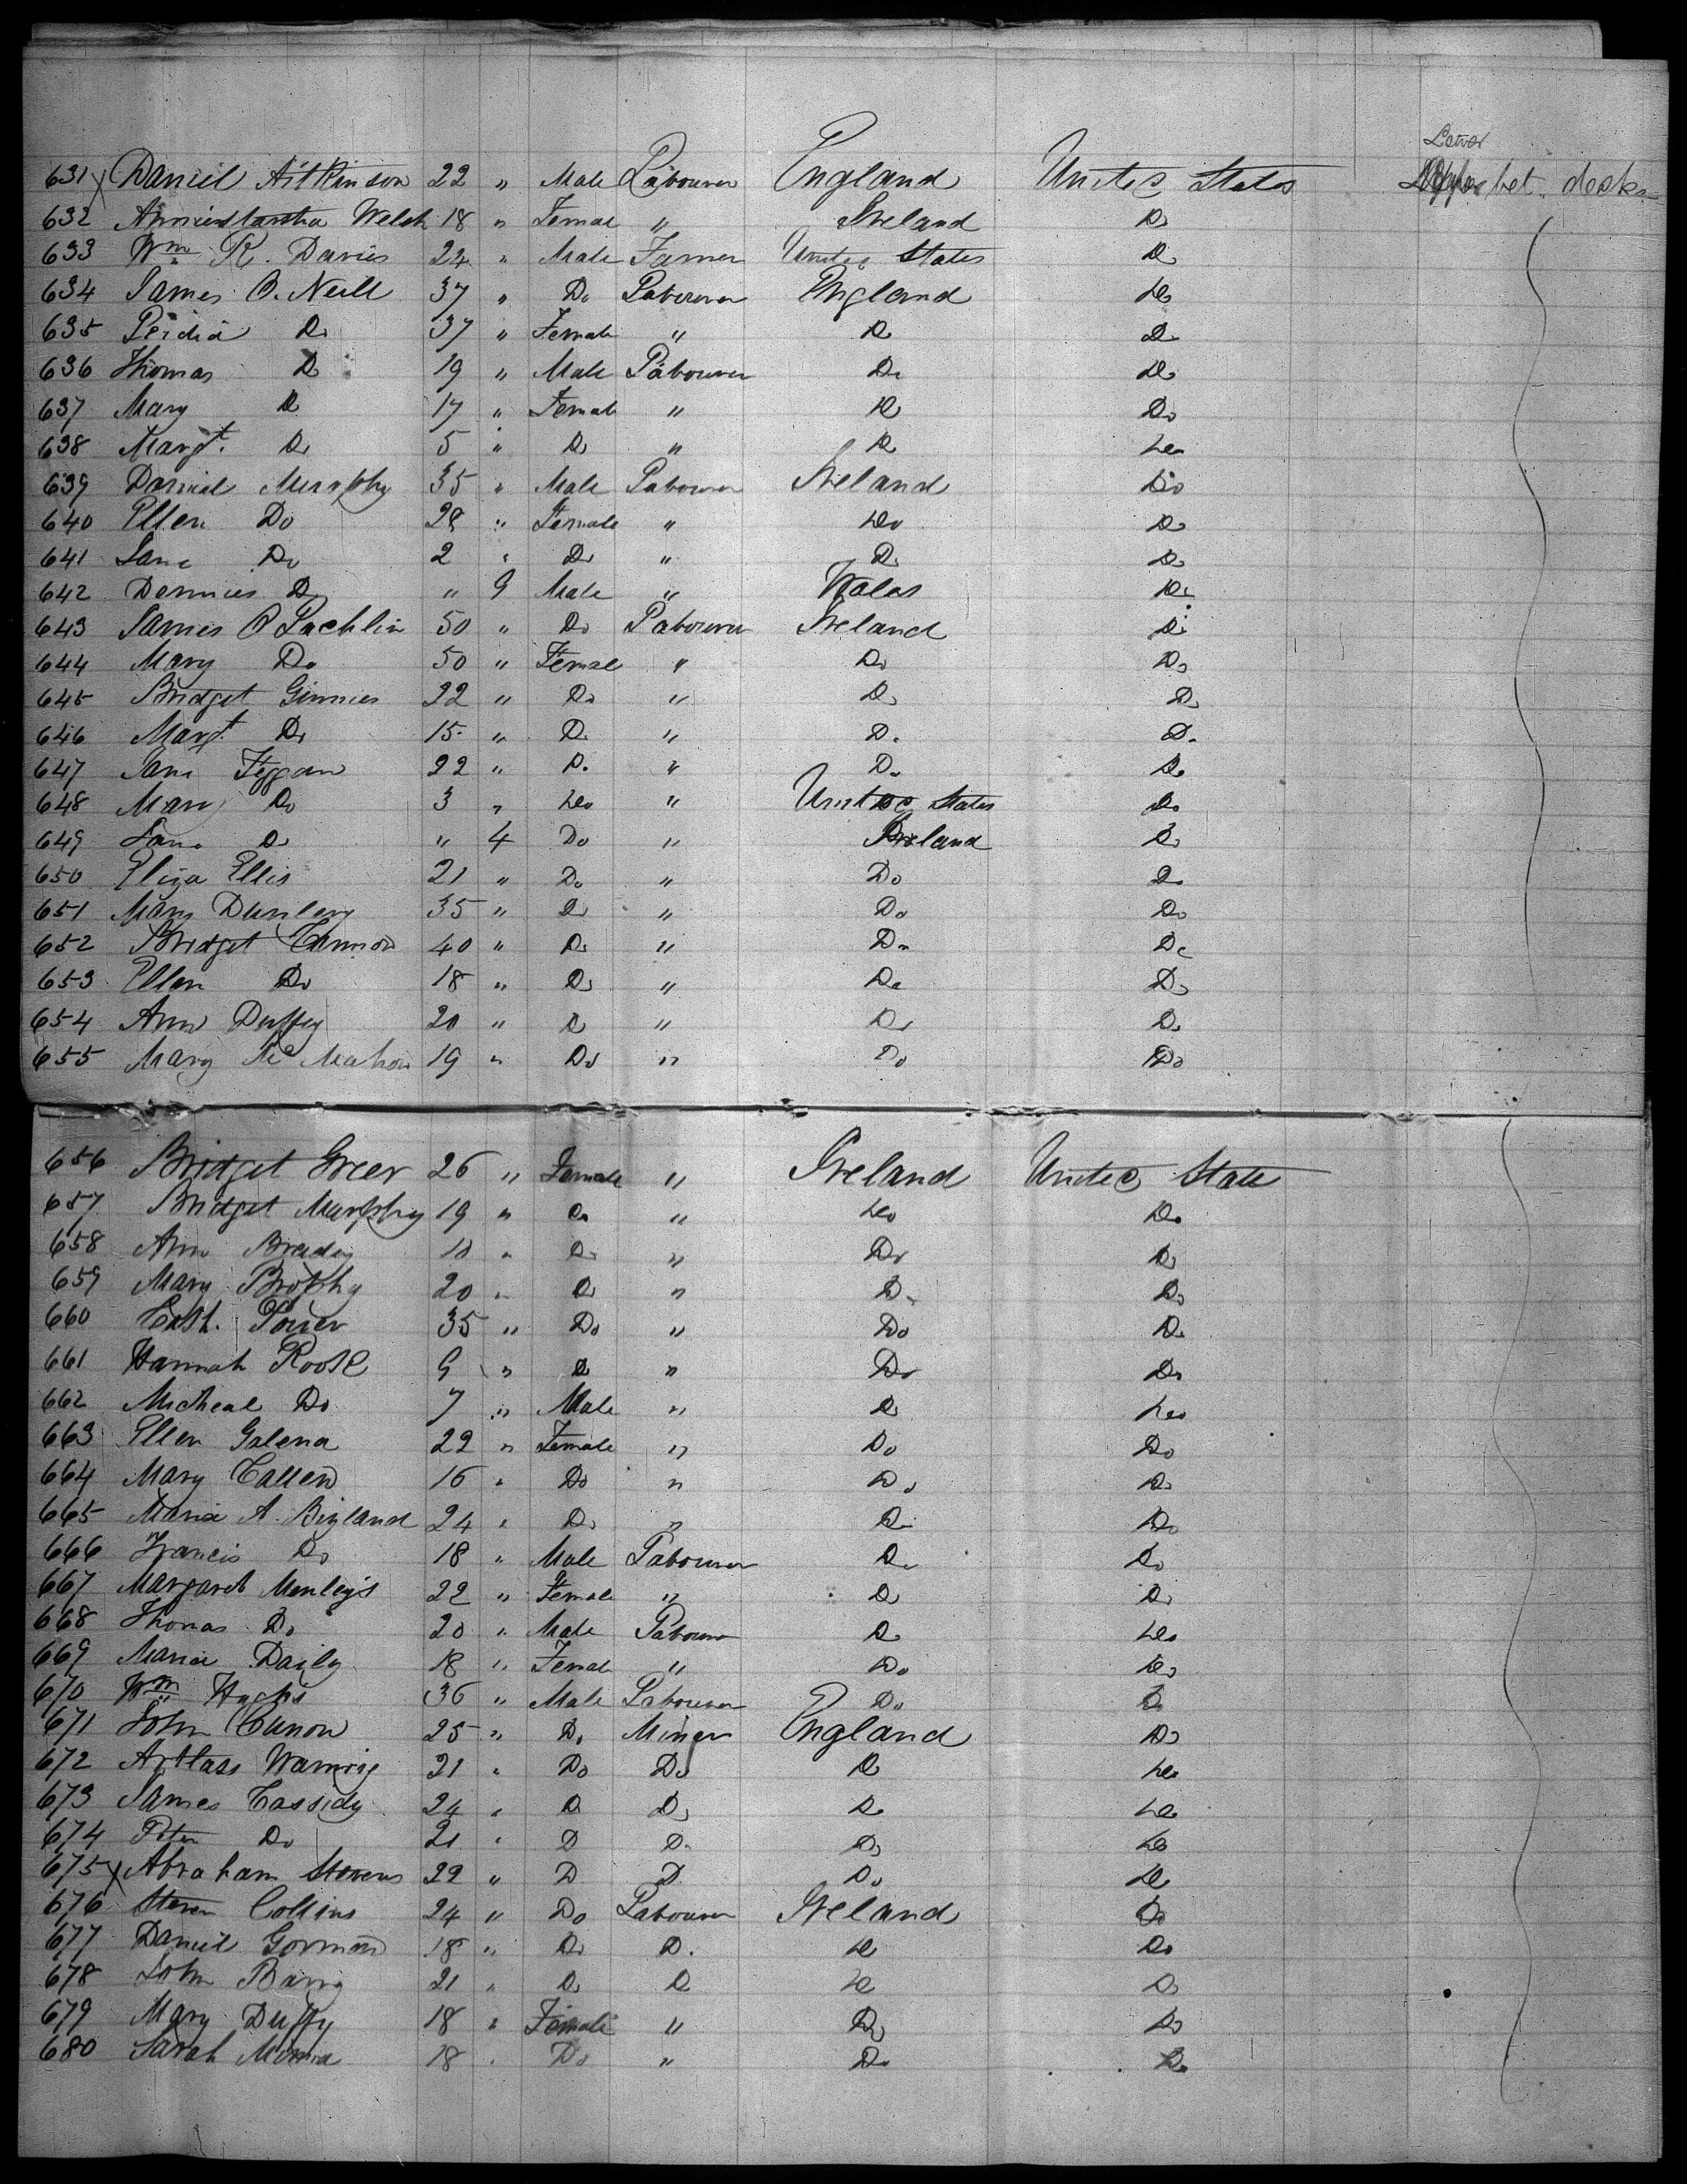 Lower
631 Daniel Aitkinson 22 " Male Labourer England United States bet. decks
632 Welsh 18 " Female " Ireland Do
633 Wm R. Davies 24 " Male Farmer United States Do
634 James O. Neill 37 " Do Labourer England Do
635 Do 37 " Female " Do Do
636 Thomas Do 19 " Male Labourer Do Do
637 Mary Do 17 " Female " Do Do
638 Margt. Do 5 " Do " Do Do
639 Daniel Murphy 35 " Male Labourer Ireland Do
640 Ellen Do 28 " Female " Do Do
641 Jane Do 2 " Do " Do Do
642 Dennies Do " 9 Male " Wales Do
643 James O Lachlin 50 " Do Labourer Ireland Do
644 Mary Do 50 " Female " Do Do
645 Bridget Ginnies 22 " Do " Do Do
646 Margt. Do 15 " Do " Do Do
647 Jane Feggan 22 " Do " Do Do
648 Mary Do 3 " Do " United States Do
649 Jane Do " 4 Do " Ireland Do
650 Eliza Ellis 21 " Do " Do Do
651 Mary Dunlevy 35 " Do " Do Do
652 Bridget Cannon 40 " Do " Do Do
653 Ellen Do 18 " Do " Do Do
654 Ann Duffey 20 " Do " Do Do
655 Mary Mc Mahon 19 " Do " Do Do
656 Bridget Greer 26 " Female " Ireland United State
657 Bridget Murphy 19 " Do " Do Do
658 Ann Brady " Do " Do Do
659 Mary Brophy 20 " Do " Do Do
660 Cath. Power 35 " Do " Do Do
661 Hannah 9 " Do " Do Do
662 Micheal Do 7 " Male " Do Do
663 Ellen Galena 22 " Female " Do Do
664 Mary Callen 16 " Do " Do Do
665 Maria A. Bigland 24 " Do " Do Do
666 Francis Do 18 " Male Labourer Do Do
667 Margaret Menleys 22 " Female " Do Do
668 Thomas Do 20 " Male Labourer Do Do
669 Maria Daily 18 " Female " Do Do
670 Wm Hughs 36 " Male Labourer Do Do
671 John Cunon 25 " Do Miner England Do
672 21 " Do Do Do Do
673 James Cassidy 24 " Do Do Do Do
674 Peter Do 21 " Do Do Do Do
675 Abraham Stevens 22 " Do Do Do Do
676 Steven Collins 24 " Do Labourer Ireland Do
677 Daniel Gorman 18 " Do Do Do Do
678 John Barry 21 " Do Do Do Do
679 Mary Duffy 18 " Female " Do Do
680 Sarah 18 " Do " Do Do